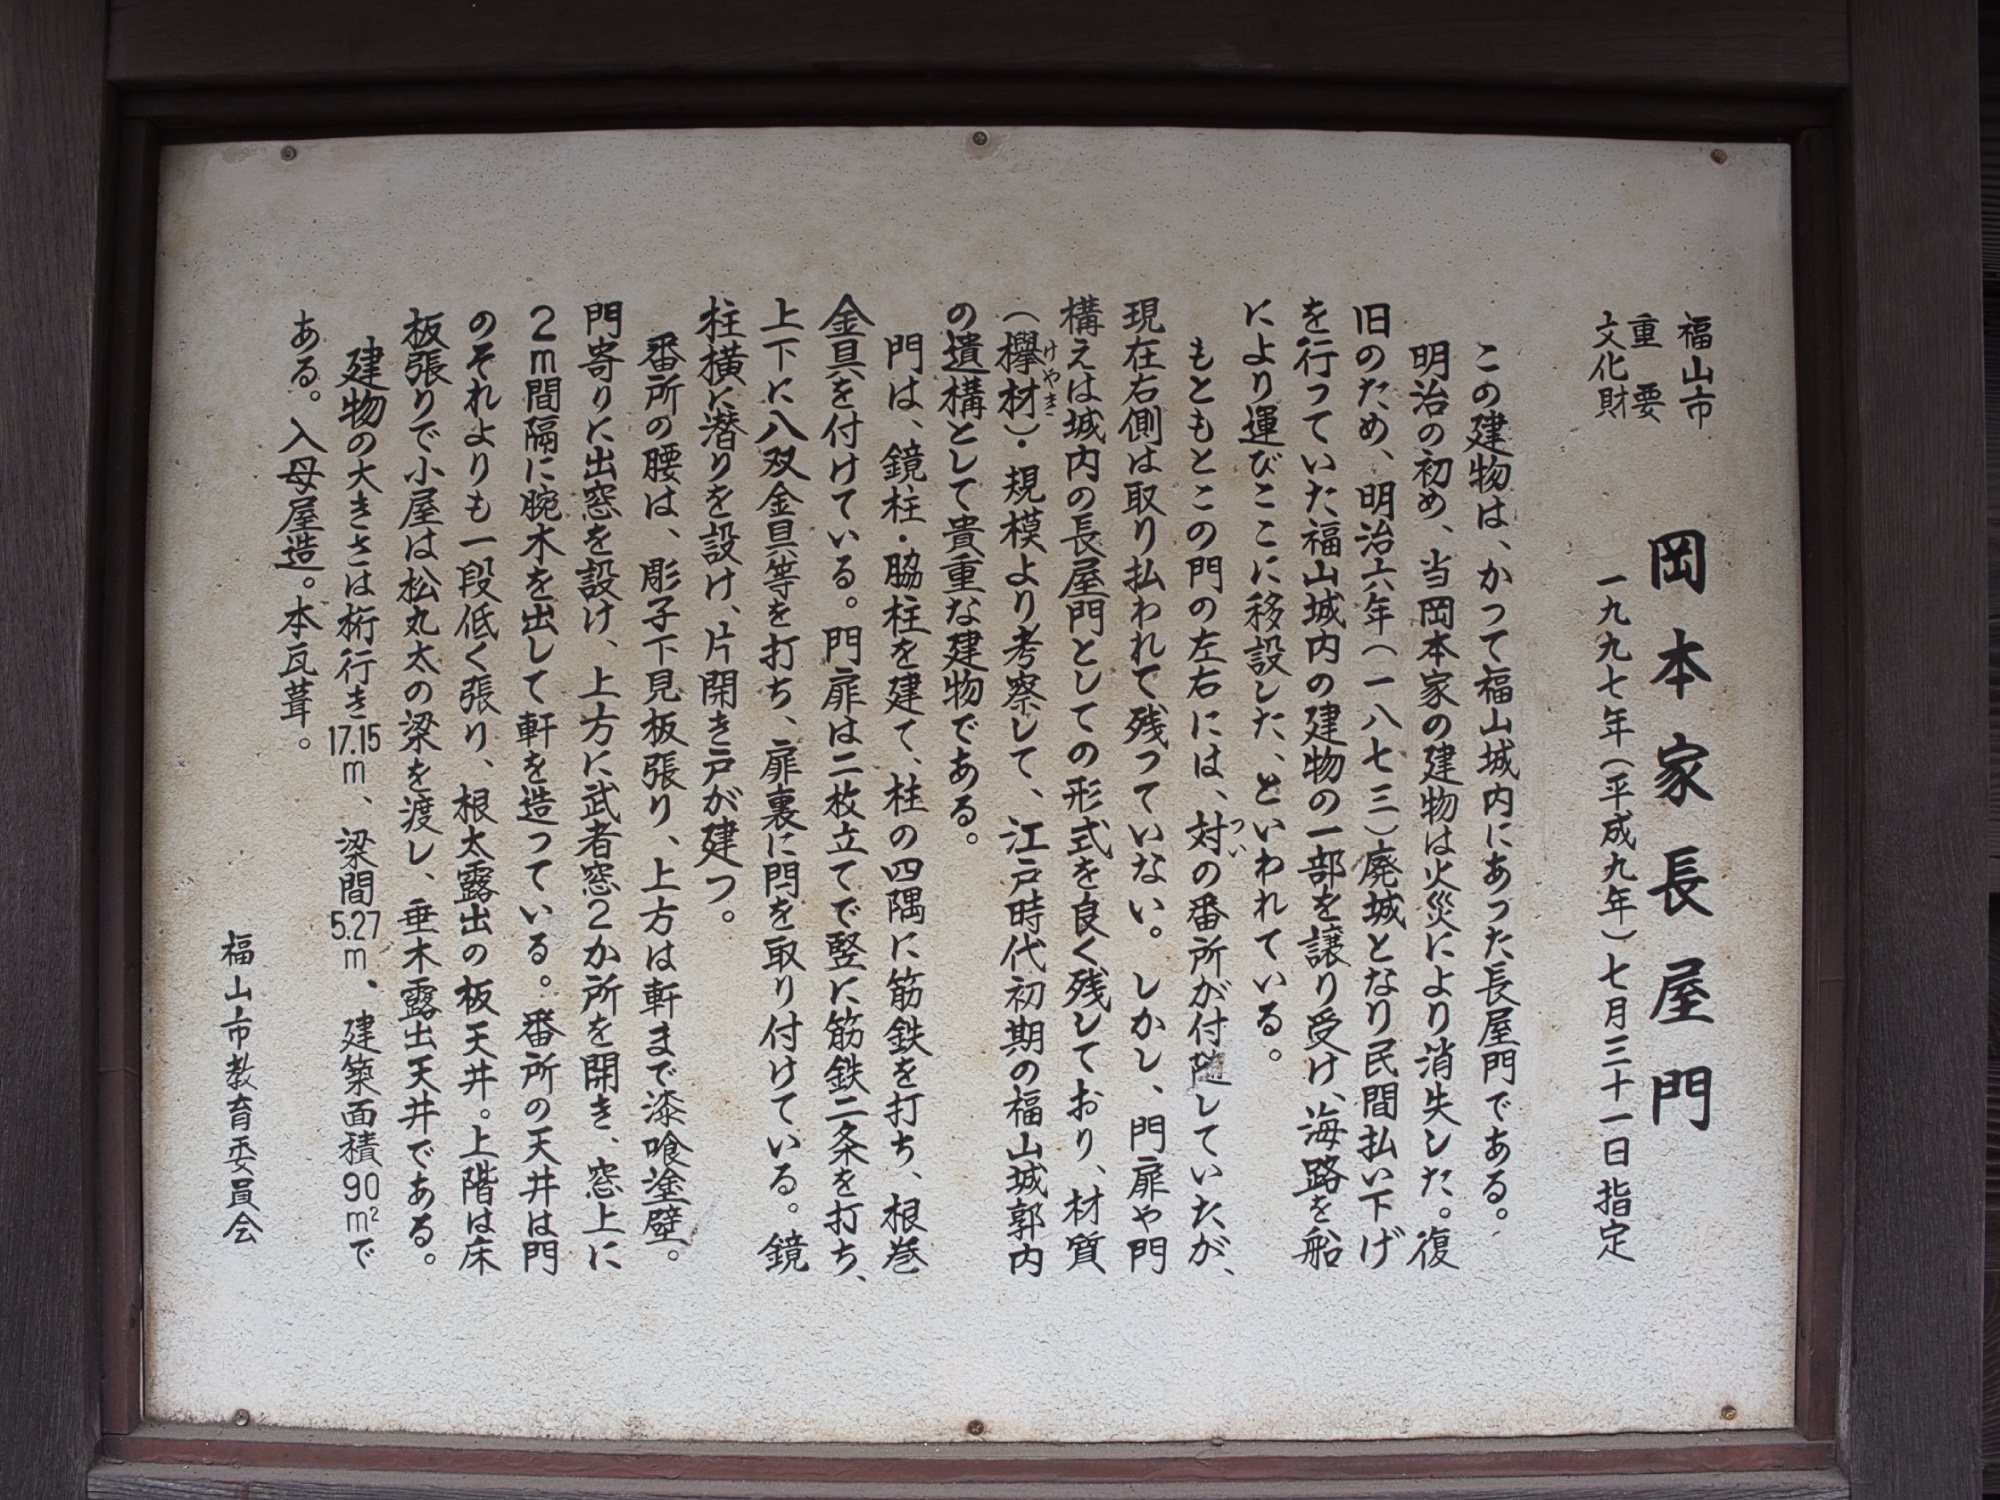 福山市
重要
文化財
岡本家長屋門
一九九七年(平成九年)七月三十一日指定
この建物は、かつて福山城内にあった長屋門である。
明治の初め、当岡本家の建物は火災により消失した。復
旧のため、明治六年(一八七三)廃城となり民間払い下げ
を行っていた福山城内の建物の一部を譲り受け、海路を船
により運びここに移設した、といわれている。
もともとこの門の左右には、対の番所が付随していたが、
つい
現在右側は取り払われて残っていない。しかし、門扉や門
構えは城内の長屋門としての形式を良く残しており、材質
(欅材)・規模より考察して、江戸時代初期の福山城郭内
けやき
の遺構として貴重な建物である。
門は、鏡柱・脇柱を建て、柱の四隅に筋鉄を打ち、根巻
金具を付けている。門扉は二枚立てで竪に筋鉄二条を打ち、
上下に八双金具等を打ち、扉裏に閂を取り付けている。鏡
柱横に潜りを設け、片開き戸が建つ。
番所の腰は、彫子下見板張り、上方は軒まで漆喰塗壁。
門寄りに出窓を設け、上方に武者窓2か所を開き、窓上に
2m間隔に腕木を出して軒を造っている。番所の天井は門
のそれよりも一段低く張り、根太露出の板天井。上階は床
板張りで小屋は松丸太の梁を渡し、垂木露出天井である。
建物の大きさは桁行き17.15m、梁間5.27m、建築面積90m²で
ある。入母屋造。本瓦葺。
福山市教育委員会